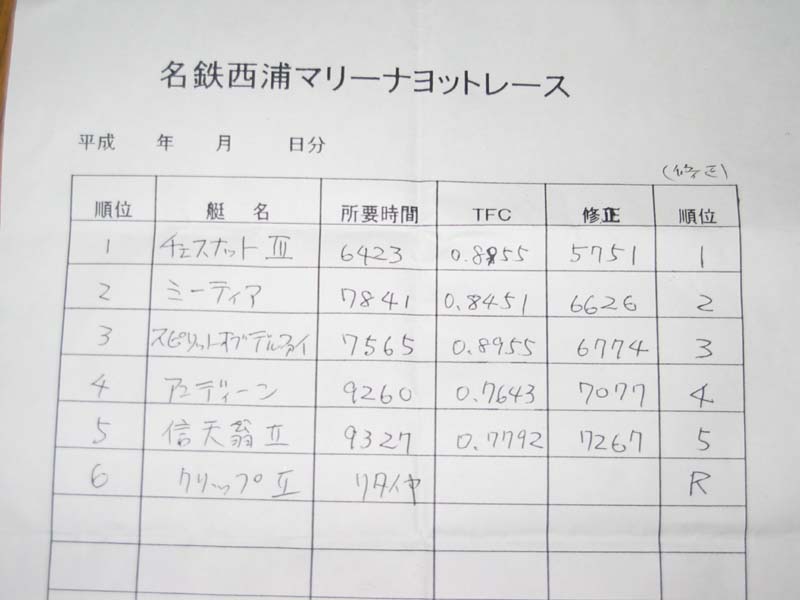 名鉄西浦マリーナヨットレース
平成 年 月 日分
(修正)
順位 艇名 所要時間 TFC 修正 順位
1 チェスナットⅢ 6423 0.8955 5751 1
2 ミーティア 7841 0.8451 6626 2
3 スピリットオブデルファイ 7565 0.8955 6774 3
4 アユディーン 9260 0.7643 7077 4
5 信天翁Ⅱ 9327 0.7792 7267 5
6 クリップⅡ リタイヤ R